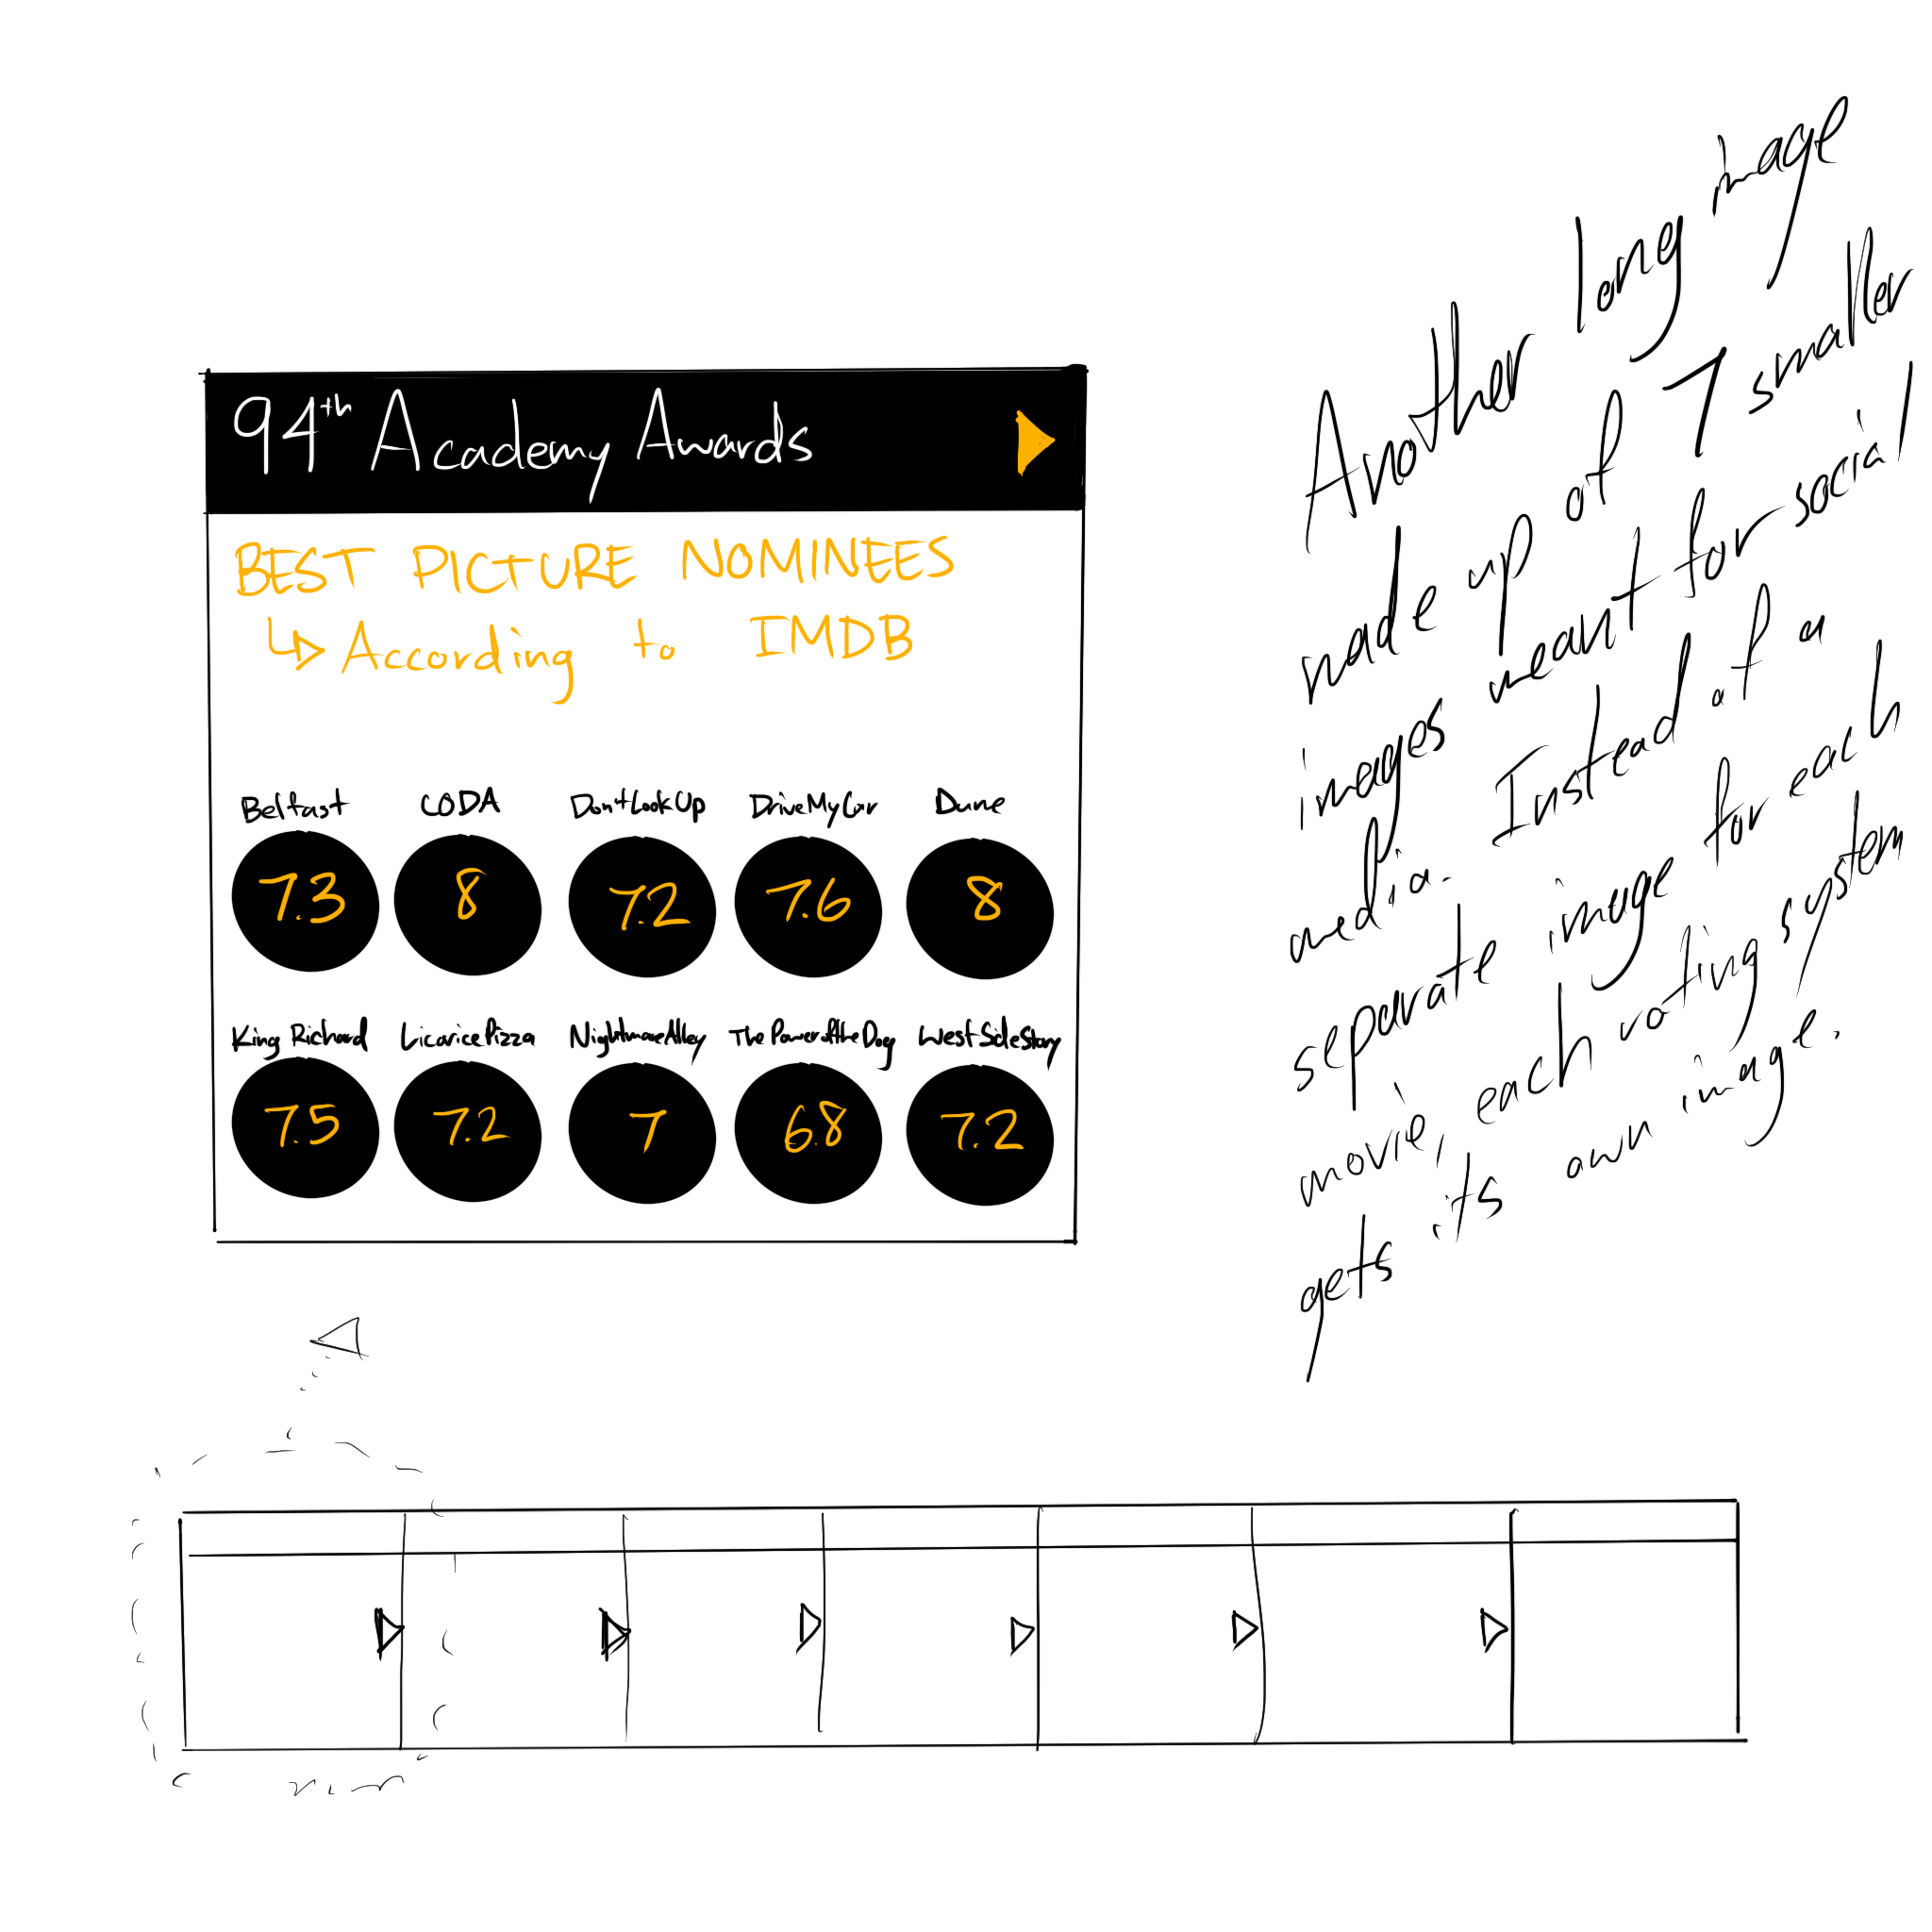 94th Academy Awards
BEST PICTURE NOMINEES
According to IMDB
Belfast CODA Don't Look Up Drive My Car Dune
7.3 8 7.2 7.6 8
King Richard Licorice Pizza Nightmare Alley The Power of the Dog West Side Story
7.5 7.2 7 6.8 7.2
Another long image
made up of 7 smaller
images meant for social
media. Instead of a
separate image for each
movie, each voting system
gets its own image.